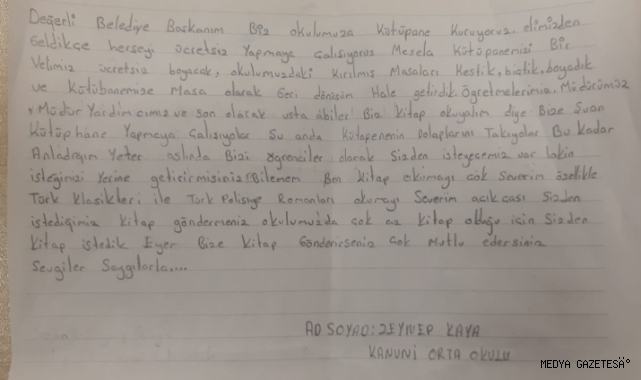 Değerli Belediye Başkanım Biz okulumuza Kütüpane Kuruyoruz, elimizden
Geldikçe herşeyi ücretsiz Yapmaya Çalışıyoruz Mesela Kütüpanemizi Bir
Velimiz ücretsiz boyacak, okulumuzdaki Kırılmış Masaları Kestik, biçtik, boyadık
ve Kütübanemize Masa olarak Geri dönüşüm Hale getirdik. Öğretmenlerimiz, Müdürümüz
, Müdür Yardımcımız ve son olarak usta abiler Biz Kitap okuyalım diye Bize Şuan
Kütüphane Yapmaya Çalışıyolar Şu anda Kütapenenin Dolaplarını Takıyolar Bu Kadar
Anladığım Yeter aslında Bizi öğrenciler olarak Sizden isteyecemiz var lakin
isteğimizi Yerine getirirmisiniz Bilemem Ben Kitap okumayı çok Severim özellikle
Türk Klasikleri ile Türk Polisiye Romanları okumayı Severim açıkçası Sizden
istediğimiz Kitap göndermeniz okulumuzda çok az Kitap olduğu için Sizden
Kitap istedik Eyer Bize Kitap Gönderirseniz Çok Mutlu edersiniz
Sevgiler Saygılarla....
AD SOYAD: ZEYNEP KAYA
KANUNİ ORTA OKULU
MEDYA GAZETESÄ°